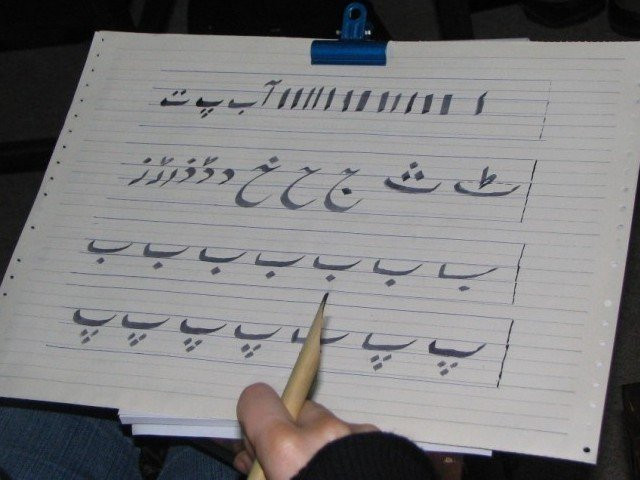 ا ا ا ا ا ا ا ا ا ا ا ا ا آ ب پ ت
ٹ ث ج ح خ د ڈ ذ ر ڑ ز
ب ب ب ب ب ب ب
پ پ ٮ پ پ پ پ